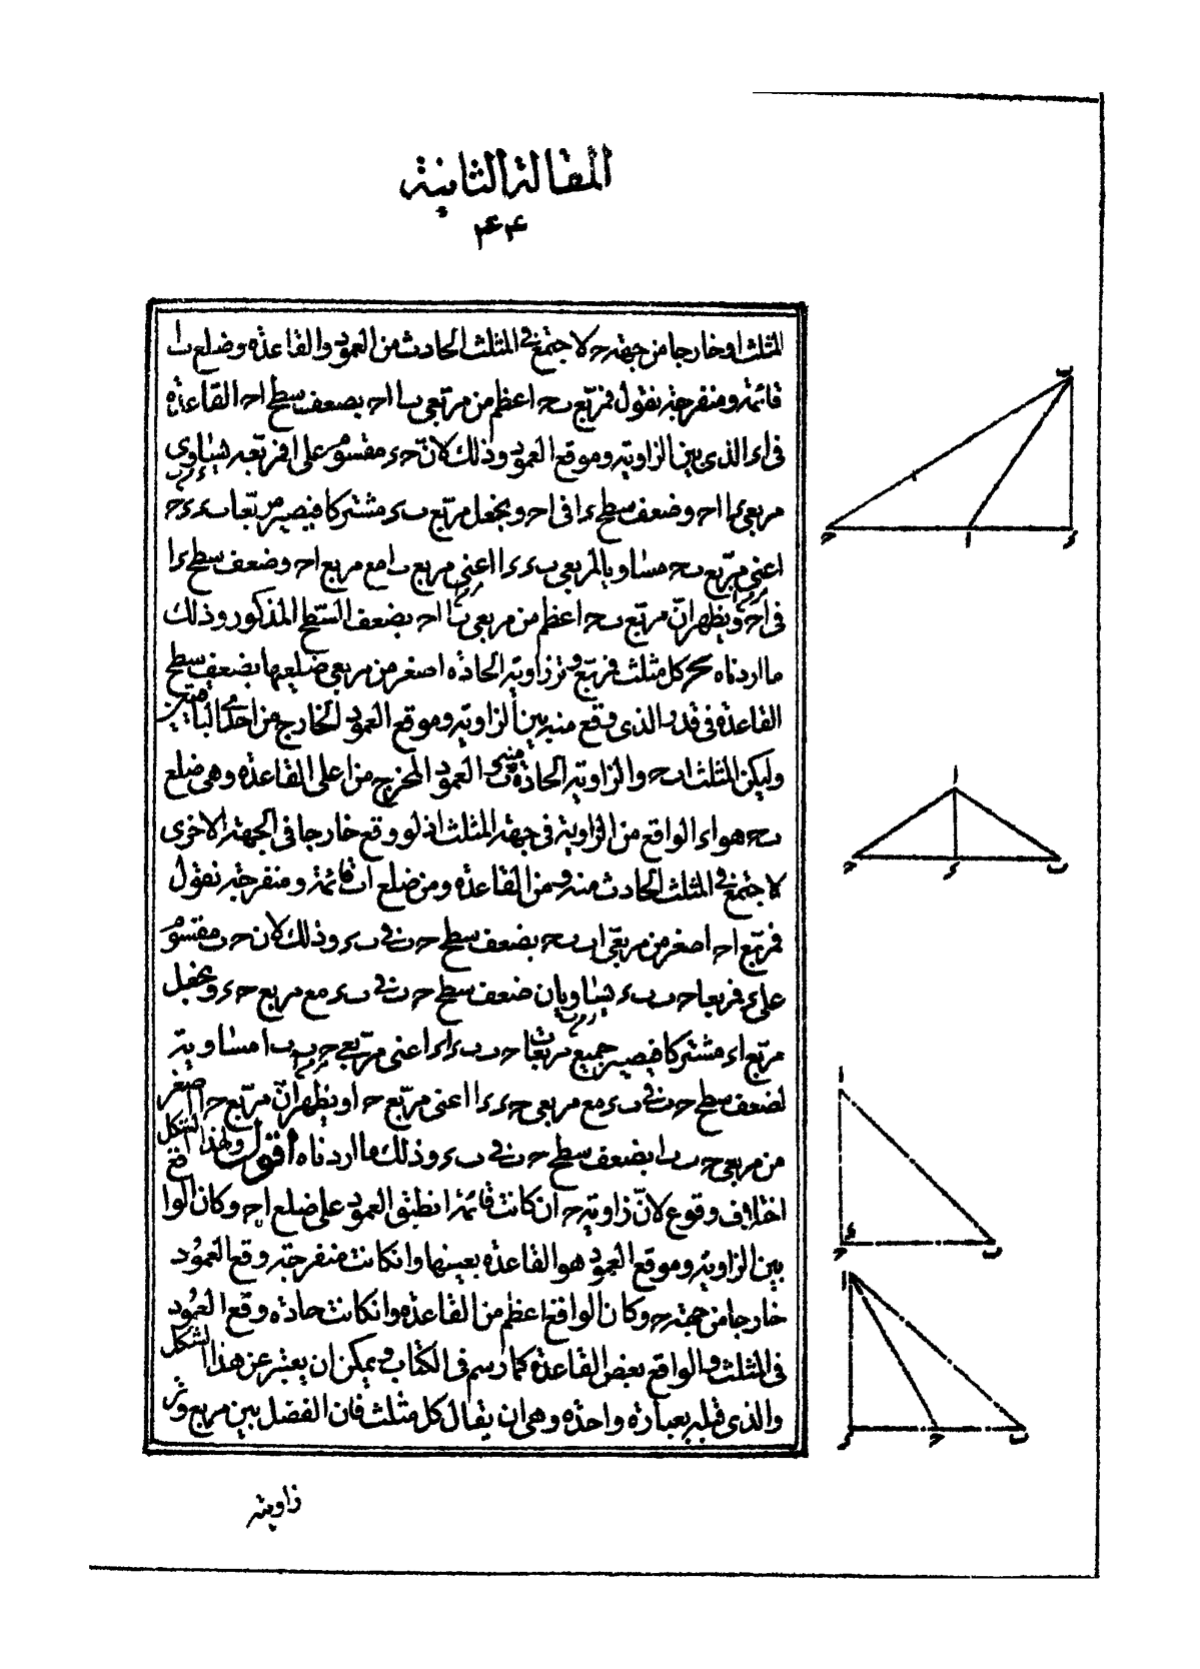 المقالة الثانية
٤٤
المثلث او خارجا من جهة ح لاجتمع فى المثلث الحادث من العمود والقاعدة وضلع ب ا
قائمة ومنفرجة نقول فمربع ب ح اعظم من مربعى ب ا ا ح بضعف سطح ا ح القاعدة
فى ا ء الذى بين الزاوية وموقع العمود وذلك لان ح ء مقسوم على ا فمربعه يساوى
مربعى ء ا ا ح وضعف سطح ء ا فى ا ح ونجعل مربع ب ء مشتركا فيصير مربعا ب ء ء ح
اعنى مربع ب ح مساويا لمربعى ب ء ء ا اعنى مربع ب ا مع مربع ا ح وضعف سطح ء ا
فى ا ح ويظهر انّ مربع ب ح اعظم من مربعى ب ا ا ح بضعف السّطح المذكور وذلك
ما اردناه كل مثلث فمربع وتر زاويته الحادّه اصغر من مربعى ضلعيها بضعف سطح
القاعدة فى قدر الذى وقع منه بين الزاوية وموقع العمود الخارج من احدى الباقيتين
وليكن المثلث ا ب ح والزاوية الحادّة ب العمود المخرج من ا على القاعدة وهى ضلع
ب ح هو ا ء الواقع من الزاوية فى جهة المثلث اذ لو وقع خارجا فى الجهة الاخرى
لاجتمع فى المثلث الحادث منه ومن القاعدة ومن ضلع ا ب قائمة ومنفرجة نقول
فمربع ا ح اصغر من مربعى ا ب ب ح بضعف سطح ح ب فى ب ء وذلك لان ح ب مقسوم
على ء فمربعا ح ب ب ء يساويان ضعف سطح ح ب فى ب ء مع مربع ح ء ونجعل
مربع ا ء مشتركا فيصير جميع مربعات ح ب ب ء ء ا اعنى مربعى ح ب ب ا مساوية
لضعف سطح ح ب فى ب ء مع مربعى ح ء ء ا اعنى مربع ح ا ويظهر انّ مربع ح ا اصغر
من مربعى ح ب ب ا بضعف سطح ح ب فى ب ء وذلك ما اردناه اقول ولهذا الشكل
اختلاف وقوع لانّ زاوية ح ان كانت قائمة انطبق العمود على ضلع ا ح وكان الواقع
بين الزاوية وموقع العمود هو القاعدة بعينها وان كانت منفرجة وقع العمود
خارجا من جهة ح وكان الواقع اعظم من القاعدة وان كانت حادّه وقع العمود
فى المثلث والواقع بعض القاعدة كما رسم فى الكتاب ويمكن ان يعبّر عن هذا الشكل
والذى قبله بعبارة واحدة وهى ان يقال كل مثلث فان الفضل بين مربع وتر
زاوية
ب
ح
ا
ء
ا
ح
ء
ب
ا
ء
ح
ب
ا
ء
ح
ب